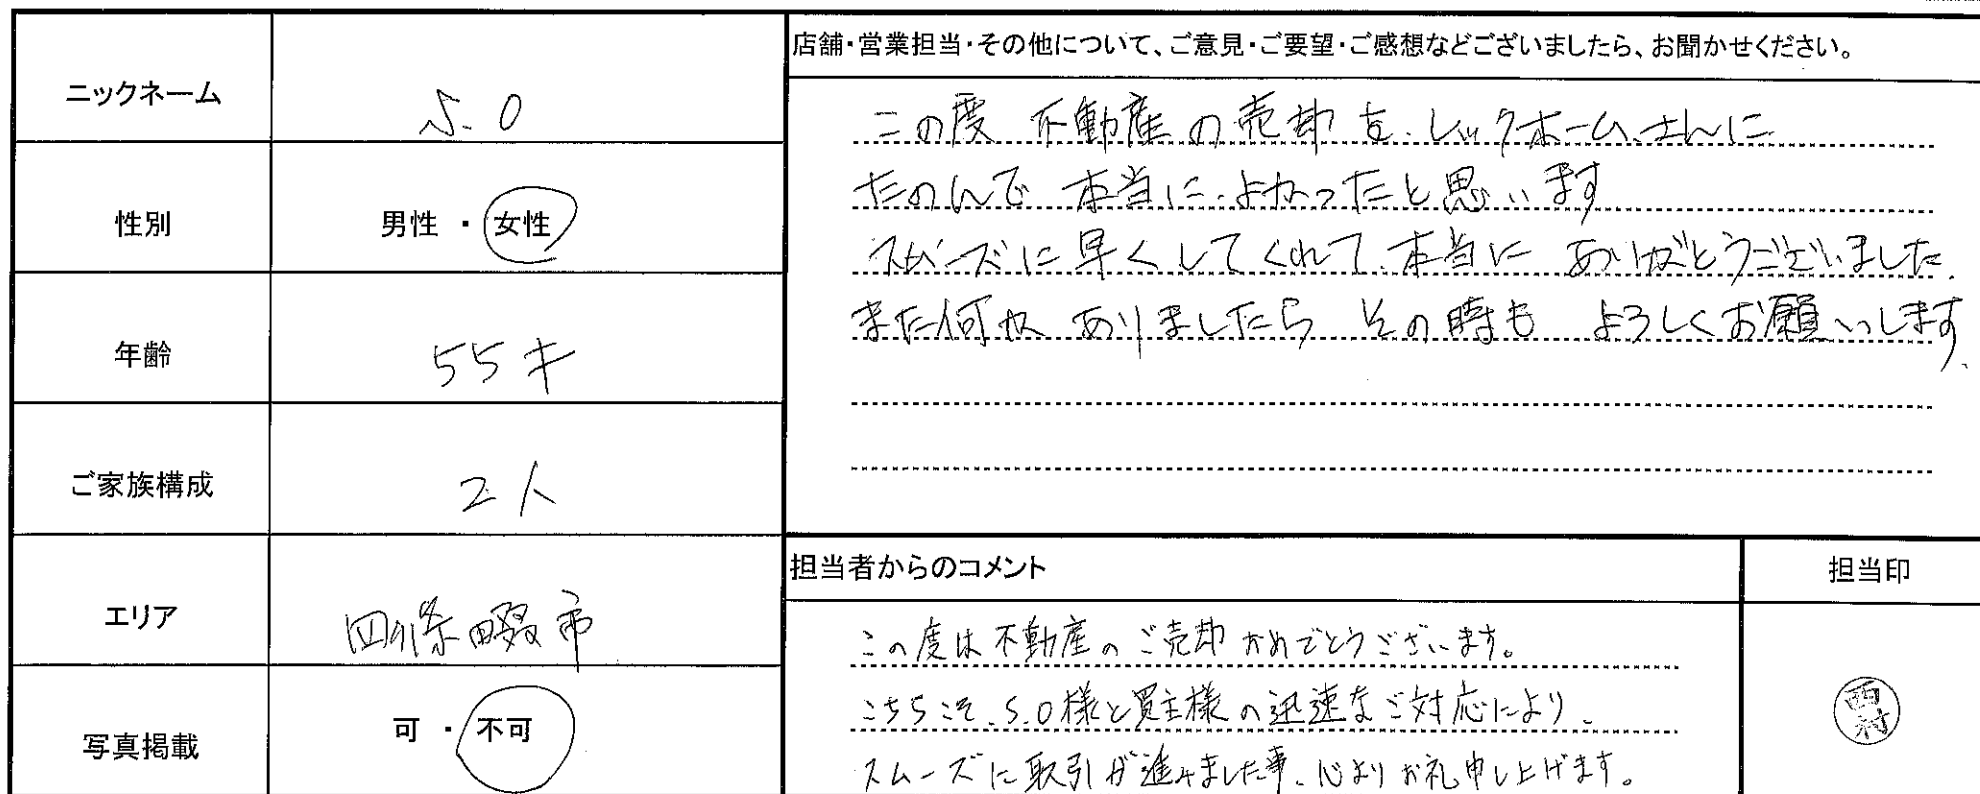 ニックネーム
S.O
性別
男性 ・ 女性
年齢
55才
ご家族構成
2人
エリア
四條畷市
写真掲載
可 ・ 不可
店舗・営業担当・その他について、ご意見・ご要望・ご感想などございましたら、お聞かせください。
この度 不動産の売却を、レックホームさんに
たのんで 本当に よかったと思います
スムーズに早くしてくれて 本当に ありがとうございました。
また何か ありましたら その時も よろしくお願いします。
担当者からのコメント
この度は不動産のご売却おめでとうございます。
こちらこそ、S.O様と買主様の迅速なご対応により、
スムーズに取引が進みました事、心よりお礼申し上げます。
担当印
西村